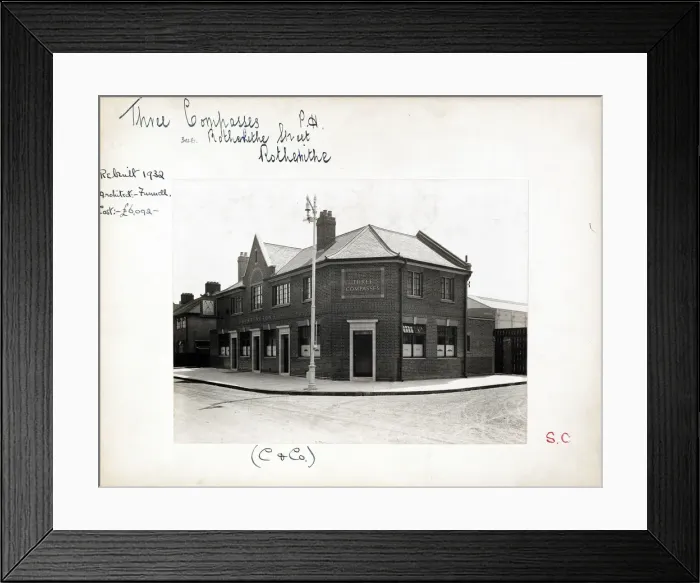 Three Compasses P.H.
308. Rotherhithe Street
Rotherhithe
Rebuilt 1932
Architect:- Funnell.
Cost:- £6,092-
THREE
COMPASSES
(C & Co.)
S.C